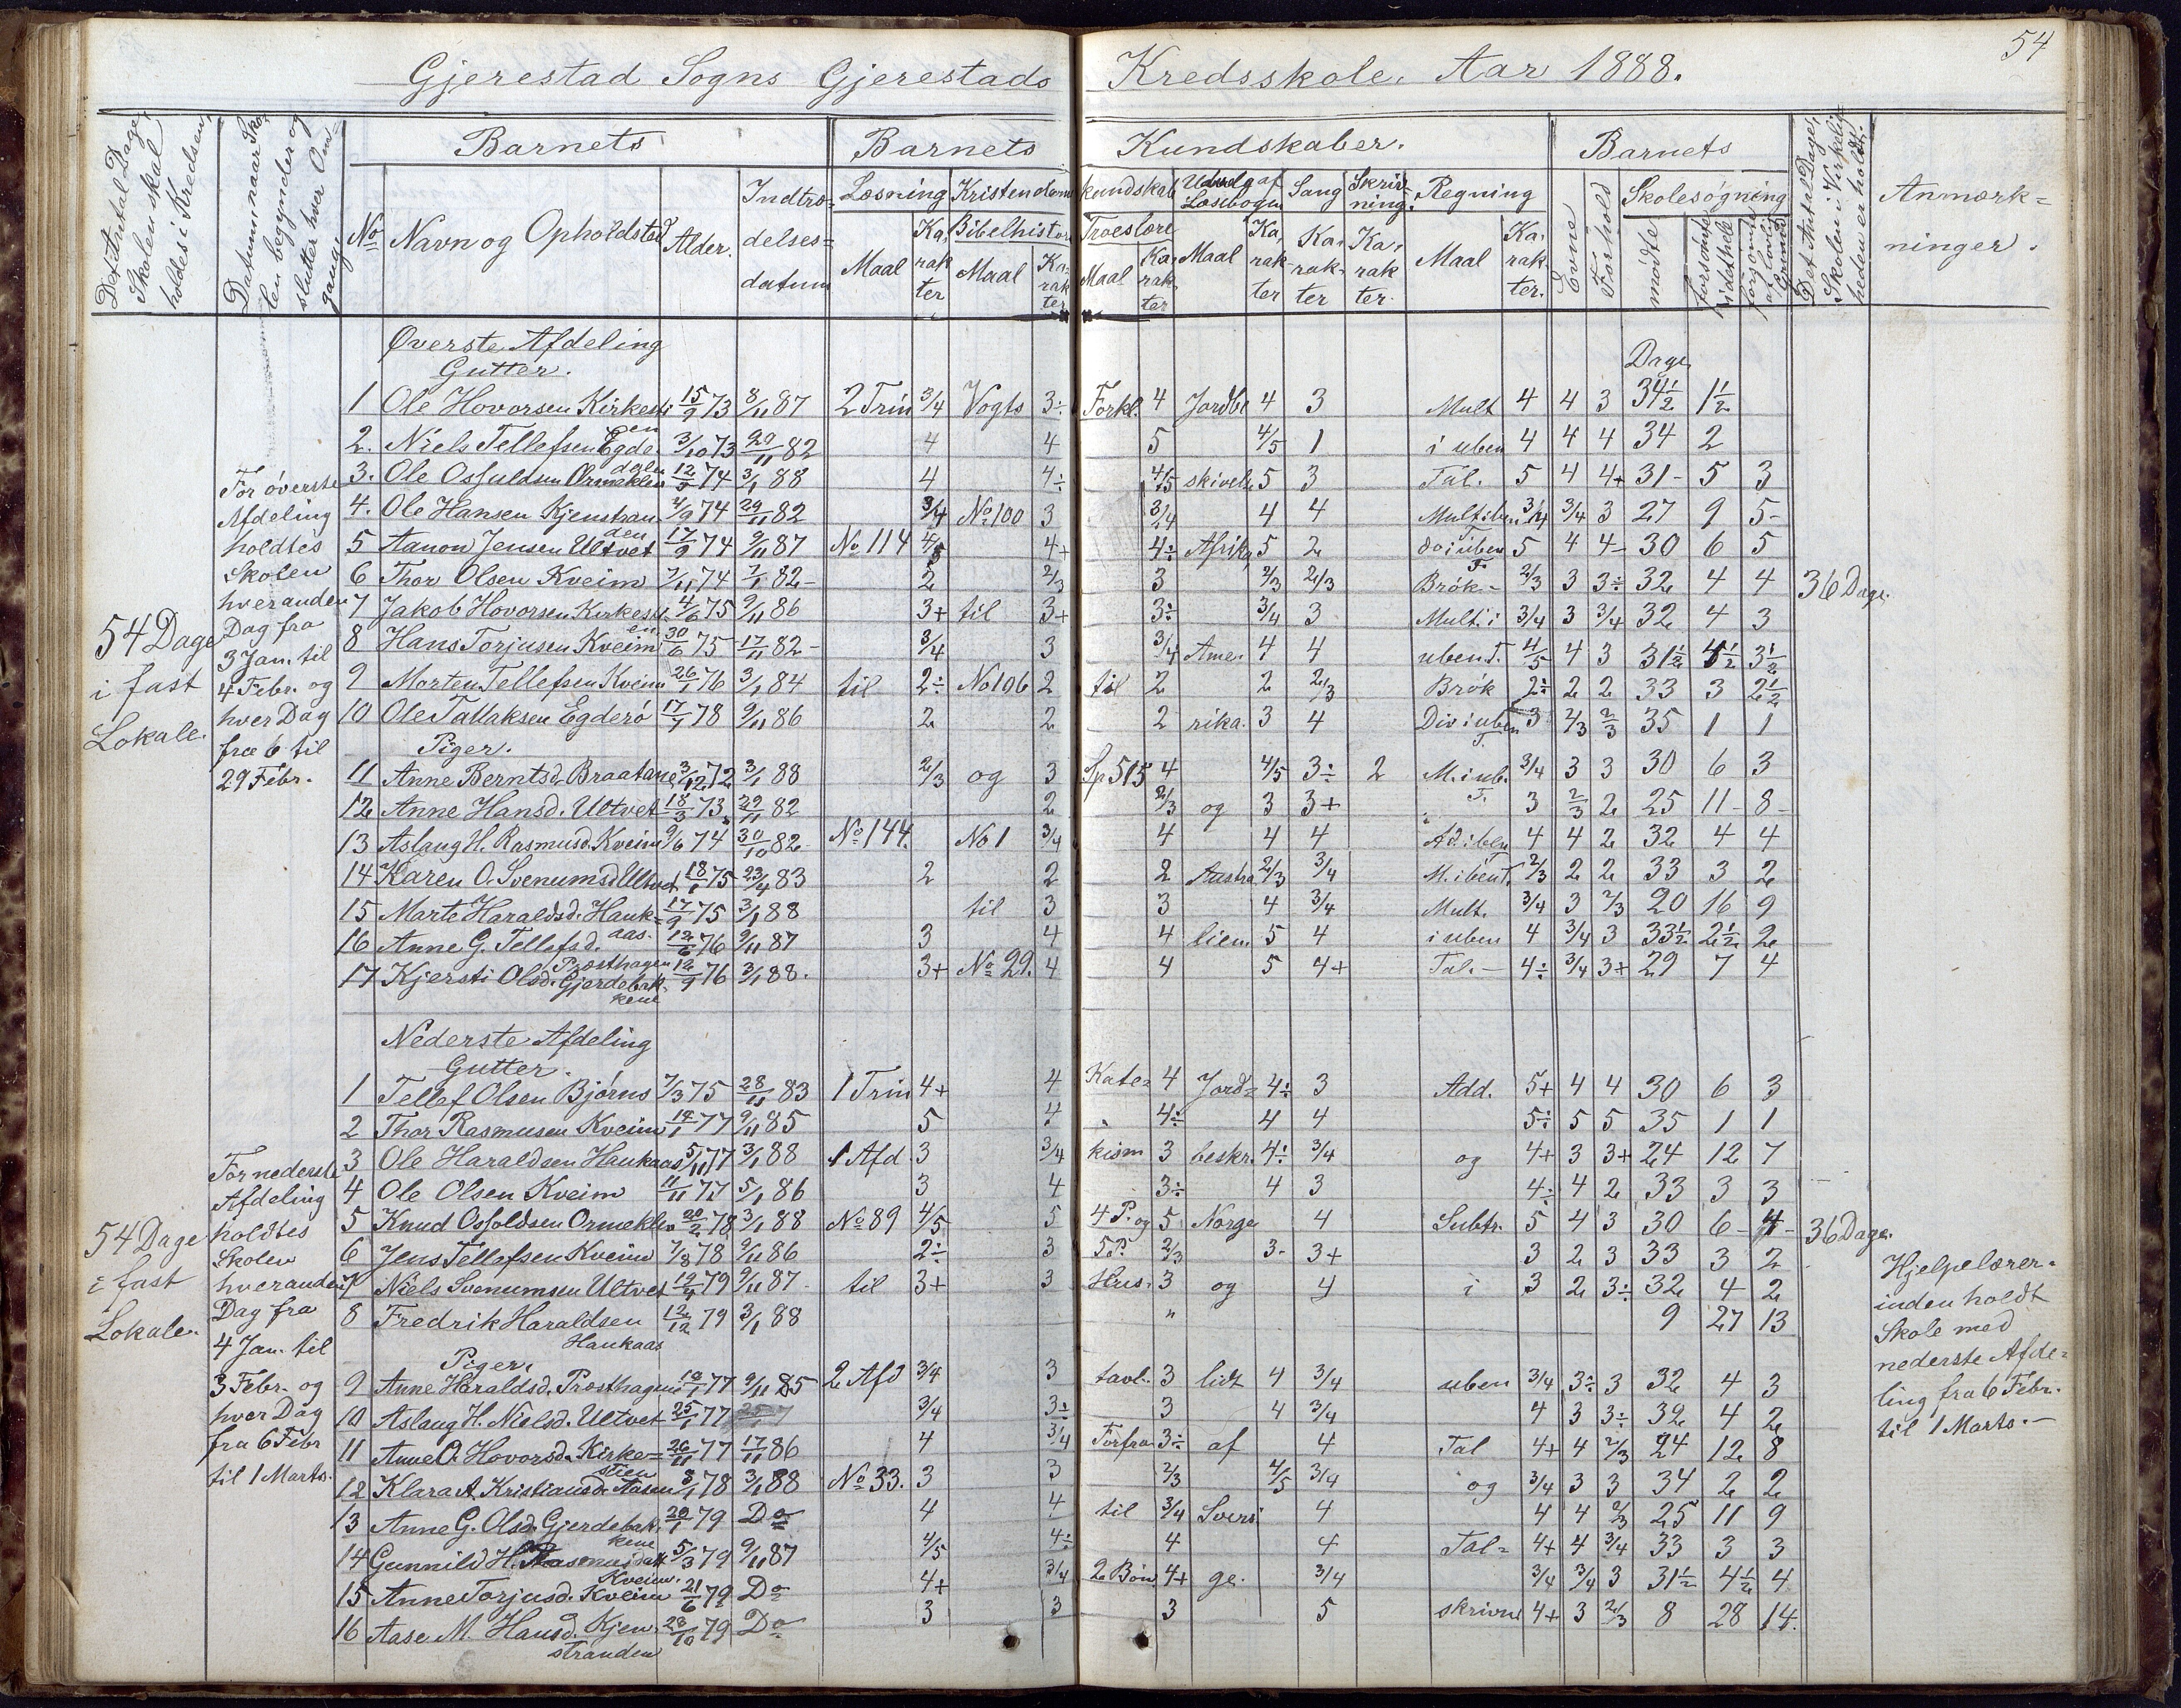 54
Gjerestad Sogns Gjerestads Kredsskole. Aar 1888.
Det Antal Dage, Skolen skal holdes i Kredsen
Datum naar Skolen begynder og slutter hver Omgang
Barnets
Barnets Kundskaber.
Barnets
Det Antal Dage, Skolen i Virkeligheden er holdt.
Anmærkninger.
No Navn og Opholdsted Alder. Indtrædelsesdatum
Læsning Kristendomskundskab Udvalg af Læsebogen Sang Skrivning. Regning
Evne Forhold Skolesøgning
Bibelhistorie Troeslære
Maal Karakter Maal Karakter Maal Karakter Maal Karakter Karakter Karakter. Maal Karakter.
mødte forsømte i det hele
Øverste Afdeling
Gutter.
Dage
1 Ole Hovorsen Kirkestien 15/9 73 8/11 87 2 Trin 3/4 Vogts 3÷ Forkl. 4 Jordbe 4 3 Mult 4 4 3 34½ 1½
2. Niels Tellefsen Egdedalen 3/10 73 29/11 82 4 4 5 4/5 1 i uben 4 4 4 34 2
3. Ole Osfuldsen Ormeklev 12/5 74 3/1 88 4 4÷ 4/5 skivelse 5 3 Tal. 5 4 4+ 31- 5 3
4. Ole Hansen Kjenstranden 4/9 74 29/11 82 3/4 No 100 3 3/4 4 4 Mult i ben 3/4 3/4 3 27 9 5-
5 Aanon Jensen Ultvet 17/9 74 9/11 87 No 114 4/5 4+ 4÷ Afrika 5 2 do i uben T. 5 4 4- 30 6 5
6 Thor Olsen Kveim 7/11 74 7/1 82- 2 2/3 3 2/3 2/3 Brøk.- 2/3 3 3÷ 32 4 4
7 Jakob Hovorsen Kirkestien 4/6 75 9/11 86 3+ til 3+ 3÷ 3/4 3 Mult. i 3/4 3 3/4 32 4 3
8 Hans Torjusen Kveim 30/6 75 17/11 82- 3/4 3 3/4 Ame- 4 4 uben T. 4/5 4 3 31½ 4½ 3½
9 Morten Tellefsen Kveim 26/1 76 3/1 84 til 2÷ No 106 2 til 2 2 2/3 Brøk 2÷ 2 2 33 3 2½
10 Ole Tallaksen Egderø 17/1 78 9/11 86 2 2 2 rika. 3 4 Div i uben T. 3 2/3 2/3 35 1 1
Piger.
11 Anne Berntsd. Braatane 3/12 72 3/1 88 2/3 og 3 Sp 515 4 4/5 3÷ 2 M. i ub. T. 3/4 3 3 30 6 3
12 Anne Hansd. Ultvet 18/3 73 29/11 82 2 2/3 og 3 3+ 3 2/3 2 25 11- 8-
13 Aslaug H. Rasmusd. Kveim 9/6 74 30/10 82. No 144. No 1 3/4 4 4 4 Ad. i ben T 4 4 2 32 4 4
14 Karen O. Svenumsd Ultvet 18/1 75 23/4 83 2 2 2 Austra 2/3 3/4 M. i ben T. 2/3 2 2 33 3 2
15 Marte Haraldsd. Haukaas. 17/9 75 3/1 88 til 3 3 4 3/4 Mult. 3/4 3 2/3 20 16 9
16 Anne G. Tellefsd. Præsthagen 12/6 76 9/11 87 3 4 4 lien 5 4 i uben 4 3/4 3 33½ 2½ 2
17 Kjersti Olsd. Gjerdebakkene 12/9 76 3/1 88. 3+ No 29. 4 4 5 4+ Tal.- 4÷ 3/4 3+ 29 7 4
54 Dage
i fast
Lokale.
For øverste
Afdeling
holdtes
Skolen
hveranden
Dag fra
3 Jan. til
4 Febr. og
hver Dag
fra 6 til
29 Febr.
36 Dage.
Nederste Afdeling
Gutter.
1 Tellef Olsen Bjørns 7/3 75 28/11 83 1 Trin 4+ 4 Kate= 4 Jord= 4÷ 3 Add. 5+ 4 4 30 6 3
2 Thor Rasmusen Kveim 14/1 77 9/11 85 5 4 4÷ 4 4 5÷ 5 5 35 1 1
3 Ole Haraldsen Haukaas 5/11 77 3/1 88 1 Afd 3 3/4 kism 3 beskr. 4÷ 3/4 og 4+ 3 3+ 24 12 7
4 Ole Olsen Kveim 11/11 77 5/1 86 3 4 3÷ 4 3 4÷ 4 2 33 3 3
5 Knud Osfoldsen Ormeklev 20/2 78 3/1 88 No 89 4/5 5 4 P. og 5 Norge 4 Subtr. 5 4 3 30 6- 4-
6 Jens Tellefsen Kveim 7/8 78 9/11 86 2÷ 3 5 P. 2/3 3- 3+ 3 2 3 33 3 2
7 Niels Svenumsen Ultvet 12/4 79 9/11 87 til 3+ 3 Hus- 3 og 4 i 3 2 3÷ 32 4 2
8 Fredrik Haraldsen Haukaas 12/12 79 3/1 88 " 9 27 13
Piger.
9 Anne Haraldsd. Præsthagen 12/1 77 9/11 85 2 Afd 3/4 3 tavl. 3 lidt 4 3/4 uben 3/4 3÷ 3 32 4 3
10 Aslaug H. Nielsd. Ultvet 25/1 77 3/4 3÷ 3 4 3/4 4 3 3÷ 32 4 2
11 Anne O. Hovorsd. Kirkestien 26/11 77 17/11 86 4 3/4 Forfra 3÷ af 4 Tal 4+ 4 2/3 24 12 8
12 Klara A. Kristiansd. Aasen 3/1 78 3/1 88 No 33. 3 3 2/3 4/5 3/4 og 3/4 3 3 34 2 2
13 Anne G. Olsd. Gjerdebakkene 20/1 79 Do 4 4 til 3/4 Sveri 4 4 4 2/3 25 11 9
14 Gunnild H. Rasmusdatt Kveim. 5/3 79 9/11 87 4/5 4÷ 4 4 Tal= 4+ 4 3/4 33 3 3
15 Anne Torjusd. Kveim 21/6 79 Do 4+ 3/4 2 Bøn 4+ ge. 3/4 3/4 3/4 3 31½ 4½ 4
16 Aase M. Hansd. Kjenstranden 28/10 79 Do 3 3 3 5 skrivn 4+ 3 2/3 8 28 14.
54 Dage
i fast
Lokale.
For nederste
Afdeling
holdtes
Skolen
hveranden
Dag fra
4 Jan. til
3 Febr. og
hver Dag
fra 6 Febr
til 1 Marts.
36 Dage.
Hjelpelærer-
inden holdt
Skole med
nederste Afde=
ling fra 6 Febr.
til 1 Marts.-